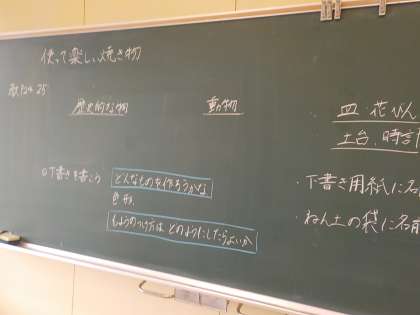 使って楽しい焼き物
P24.25
歴史的な物
動物
皿・花びん
土台、時計
◎下書きを書こう
どんなものを作ろうかな
色、形、
もようのつけ方は どのようにしたらよいか
・下書き用紙に名
・ねん土の袋に名前